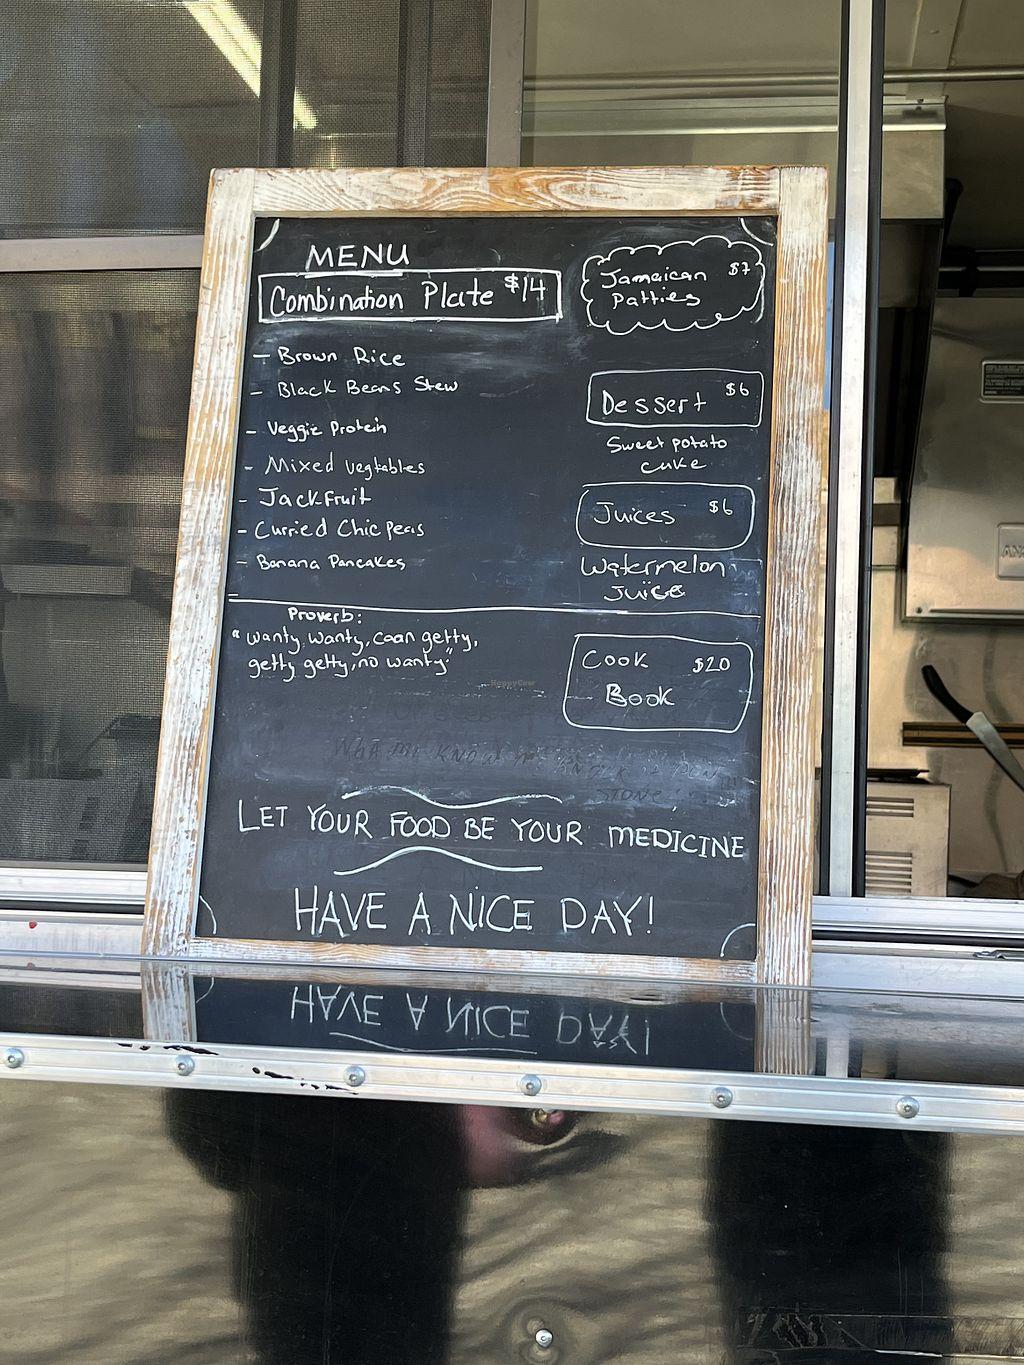 MENU
Combination Plate $14
- Brown Rice
- Black Beans Stew
- Veggie Protein
- Mixed Vegtables
- Jackfruit
- Curried Chic Peas
- Banana Pancakes
-
Jamaican $7
Patties
Dessert $6
Sweet potato
cake
Juices $6
Watermelon
Juice
Proverb:
"Wanty Wanty, caan getty,
getty getty, no wanty"
Cook $20
Book
HappyCow
LET YOUR FOOD BE YOUR MEDICINE
HAVE A NICE DAY!
HAVE A NICE DAY!